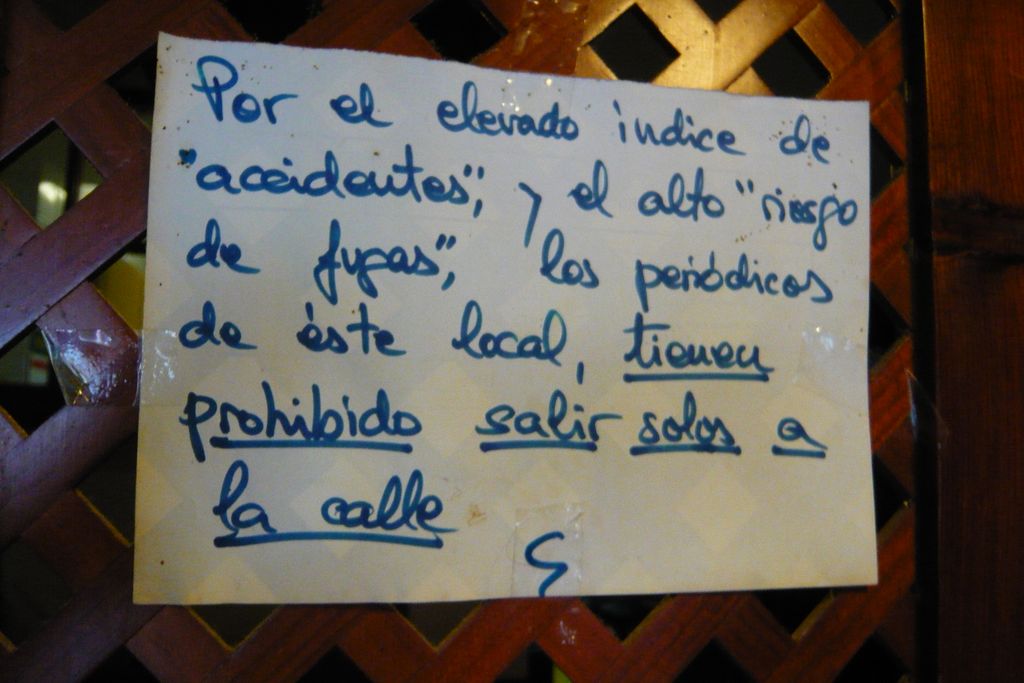 Por el elevado índice de
"accidentes", y el alto "riesgo
de fugas", los periódicos
de éste local, tienen
prohibido salir solos a
la calle